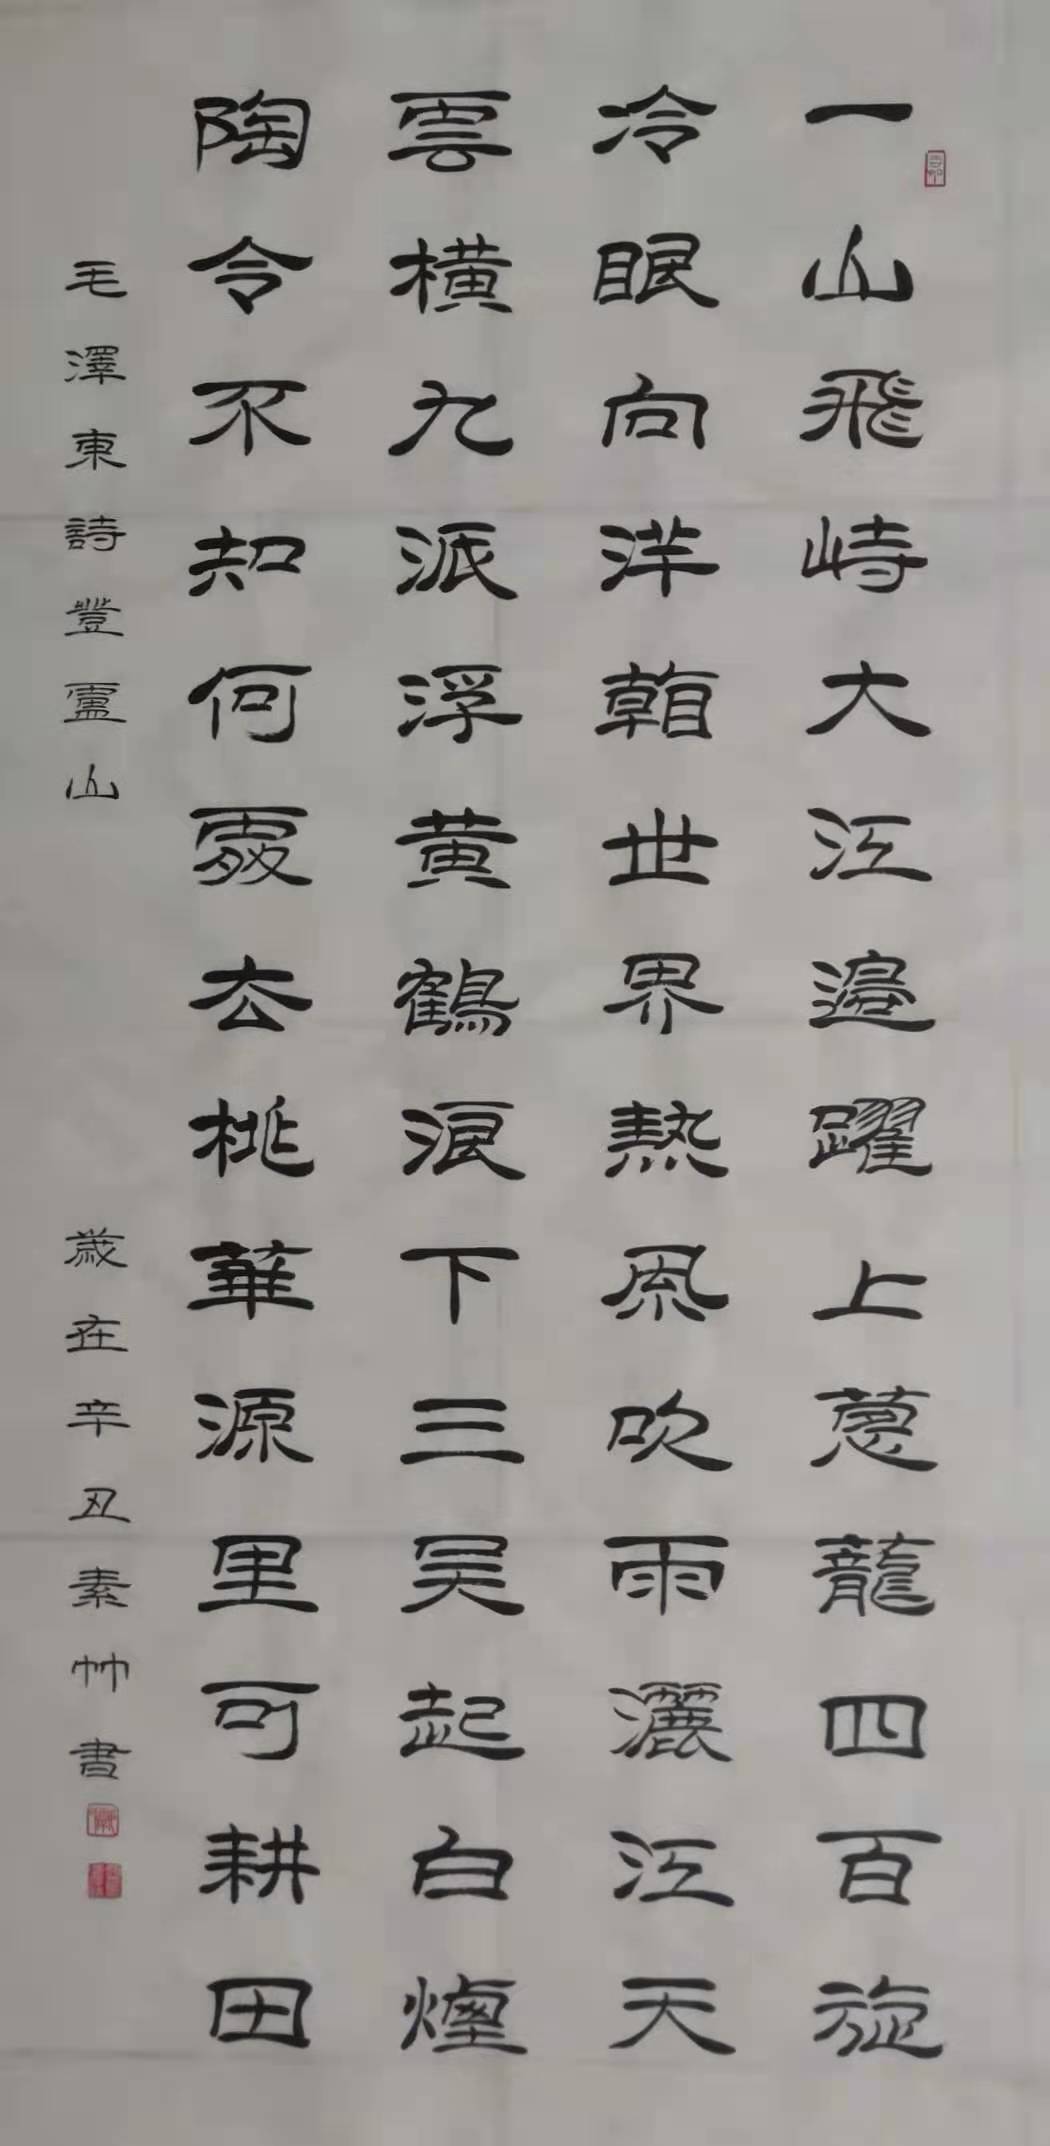 一山飛峙大江邉躍上蔥蘢四百旋
冷眼向洋朝世界熱風吹雨灑江天
雲橫九派浮黃鶴浪下三吳起白煙
陶令不知何處去桃華源里可耕田
毛澤東詩登廬山
歲在辛丑素竹書